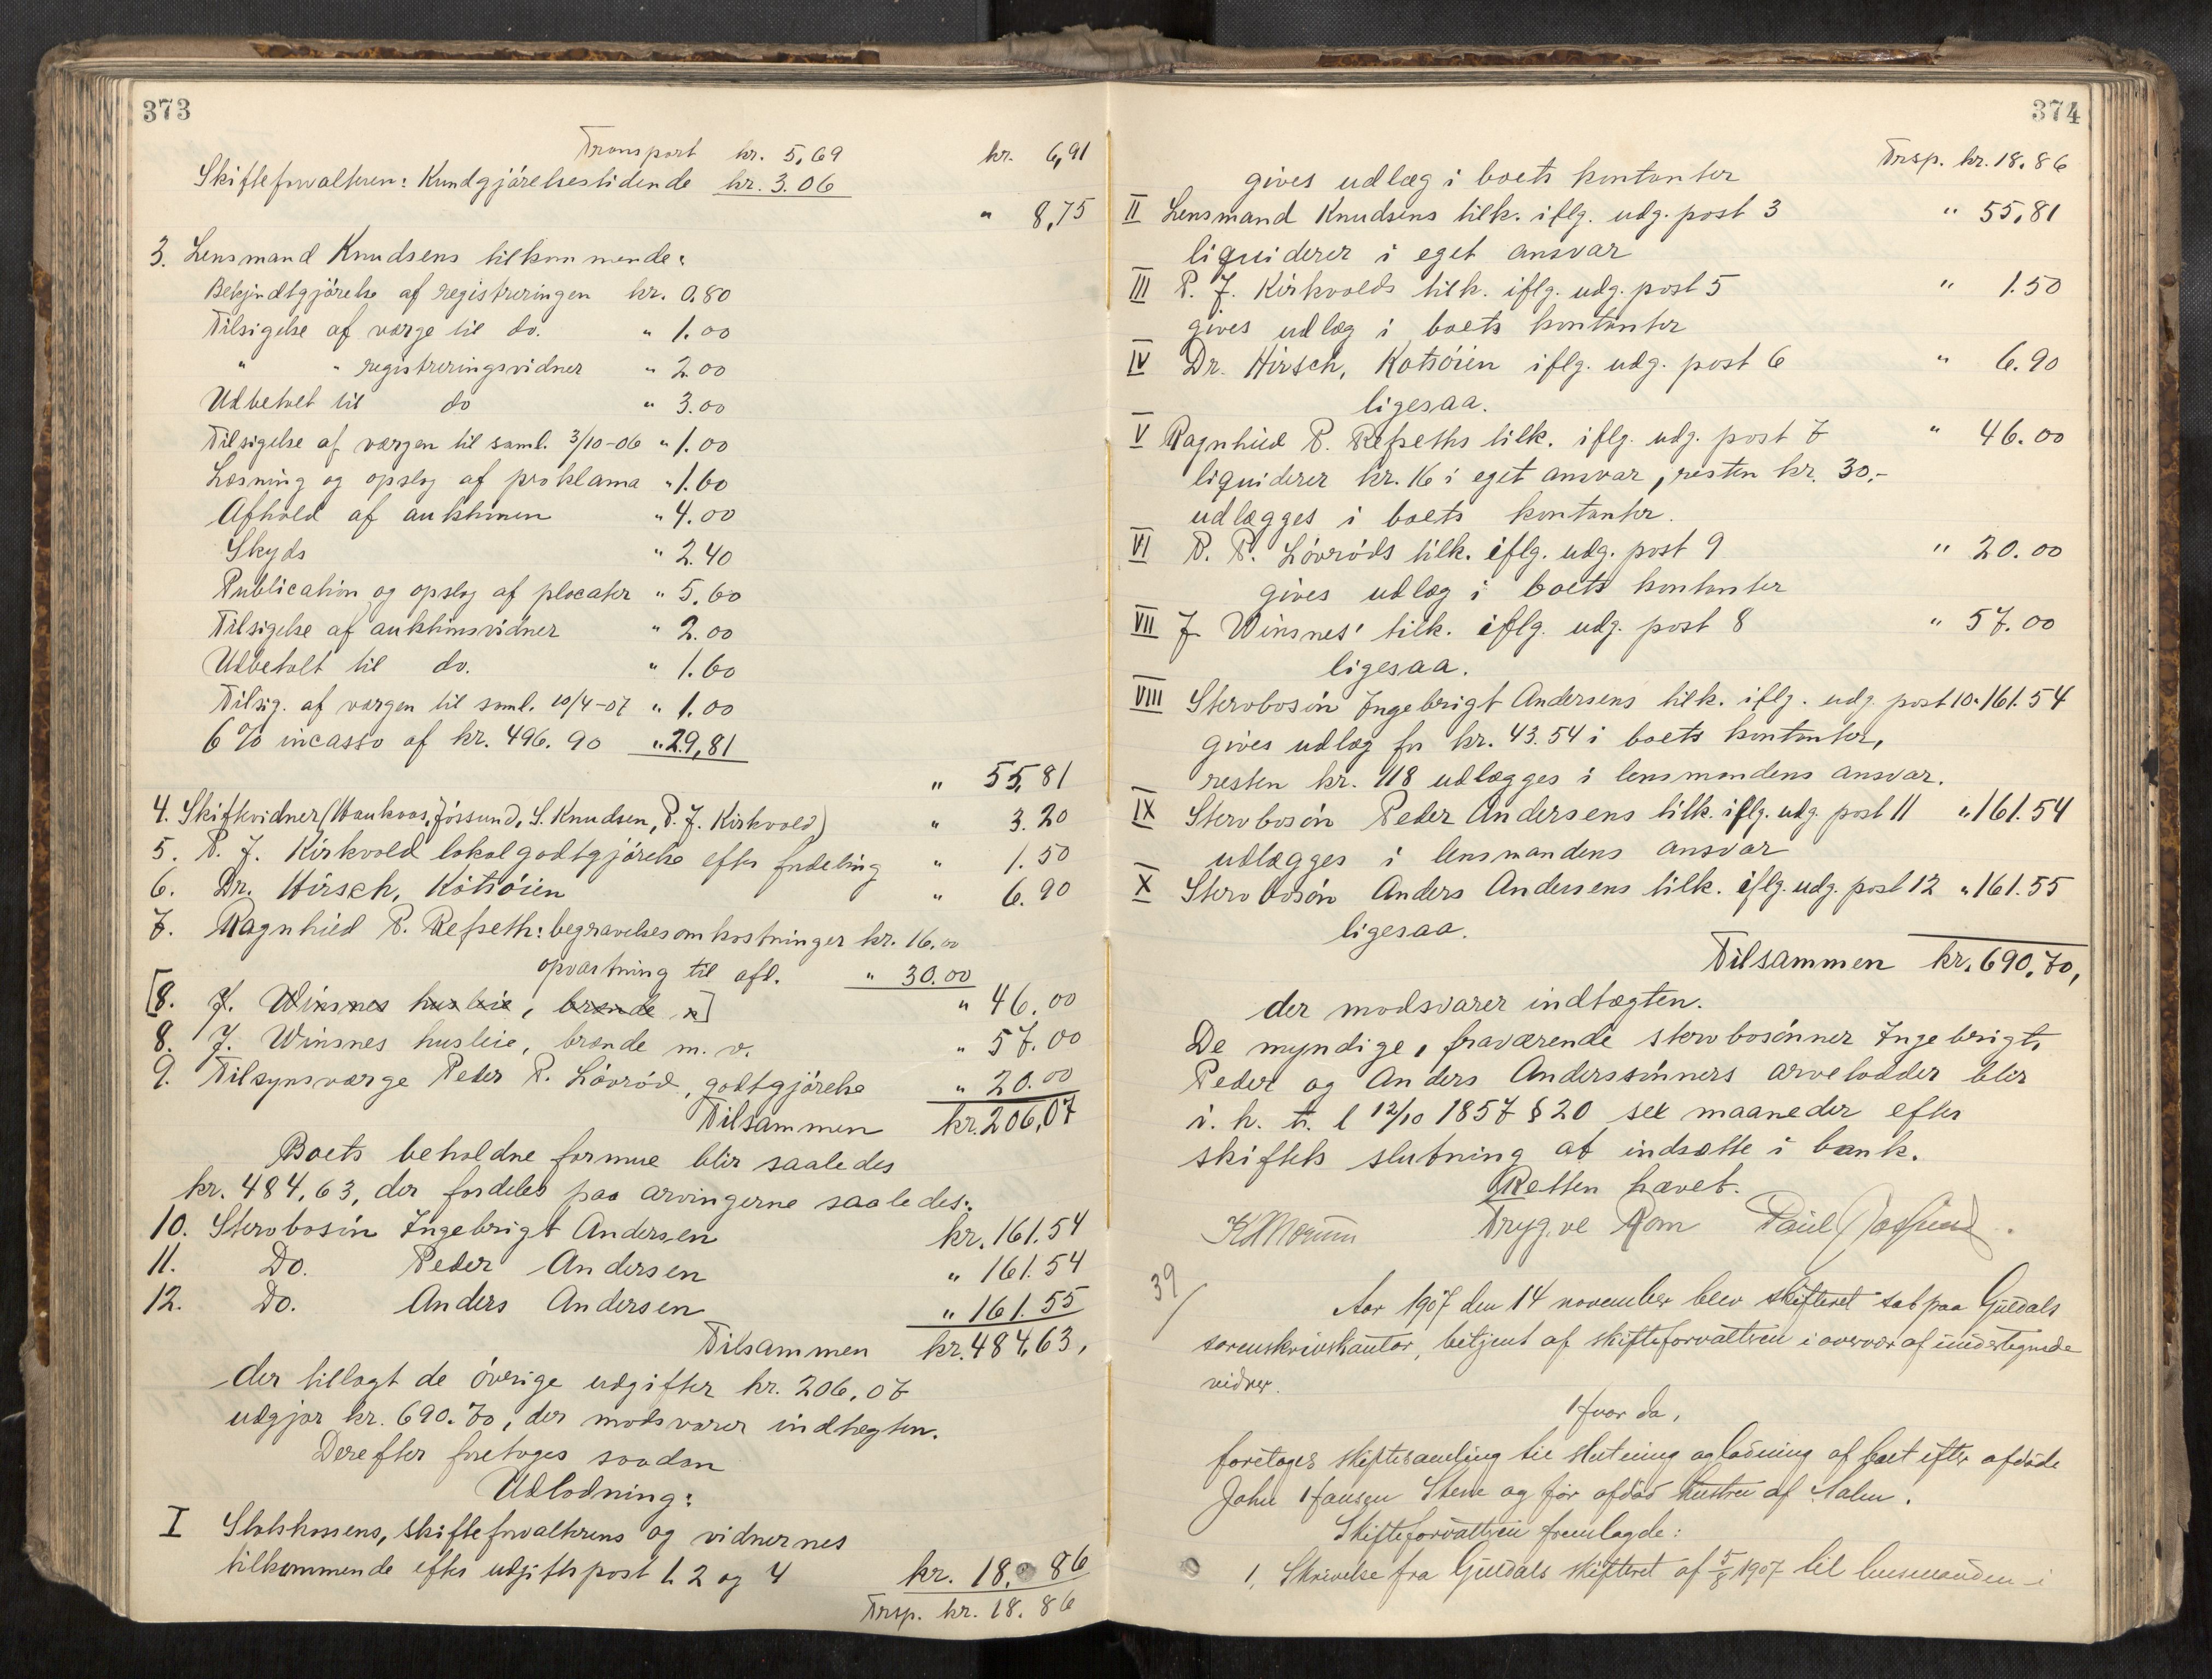 373
Transport kr. 5,69 kr. 6,91
Skifteforvalteren: Kundgjörelsestidende kr. 3.06
" 8,75
3. Lensmand Knudsens tilkommende:
Bekjendtgjörelse af registreringen kr. 0.80
Tilsigelse af værge til do. " 1.00
" " registreringsvidner " 2.00
Udbetalt til do " 3.00
Tilsigelse af værgen til saml. 3/10-06 " 1.00
Læsning og opslag af proklama " 1.60
Afhold af auktionen " 4.00
Skyds " 2.40
Publication og opslag af placater " 5.60
Tilsigelse af auktionsvidner " 2.00
Udbetalt til do. " 1.60
Tilsig. af værgen til saml. 10/4-07 " 1.00
6 % incasso af kr. 496.90 " 29,81
" 55,81
4. Skiftevidner (Haukaas, Jössund, S. Knudsen, P. J. Kirkvold) " 3.20
5. P. J. Kirkvold lokalgodtgjörelse efter fordeling " 1.50
6. Dr. Hirsch, Kotsöien " 6.90
7. Ragnhild P. Refseth: begravelsesomkostninger kr. 16.00
opvartning til afd. " 30.00
" 46.00
[8. J. Winsnes husleie, brænde m]
8. J. Winsnes husleie, brænde m. v. " 57.00
9. Tilsynsværge Peder P. Lövröd, godtgjörelse " 20.00
Tilsammen kr. 206,07
Boets beholdne formue blir saaledes
kr. 484,63, der fordeles paa arvingerne saaledes:
10. Stervbosön Ingebrigt Andersen kr. 161.54
11. Do. Peder Andersen " 161.54
12. Do. Anders Andersen " 161.55
Tilsammen kr. 484,63,
der tillagt de övrige udgifter kr. 206,07
udgjør kr. 690.70, der modsvarer indtægten.
Derefter foretoges saadan
Udlodning:
I Statskassens, skifteforvalterens og vidnernes
tilkommende efter udgiftspost 1, 2 og 4 kr. 18.86
Trsp. kr. 18.86
374
Trsp. kr. 18.86
gives udlæg i boets kontanter
II Lensmand Knudsens tilk. iflg. udg. post 3 " 55,81
liquiderer i eget ansvar
III P. J. Kirkvolds tilk. iflg. udg. post 5 " 1.50
gives udlæg i boets kontanter
IV Dr. Hirsch, Kotsöien iflg. udg. post 6 " 6.90
ligesaa.
V Ragnhild P. Refseths tilk. iflg. udg. post 7 " 46.00
liquiderer kr. 16 i eget ansvar, resten kr. 30,-
udlægges i boets kontanter.
VI P. P. Lövröds tilk. iflg. udg. post 9 " 20.00
gives udlæg i boets kontanter
VII J. Winsnes' tilk. iflg. udg. post 8 " 57.00
ligesaa.
VIII Stervbosön Ingebrigt Andersens tilk. iflg. udg. post 10 " 161.54
gives udlæg for kr. 43.54 i boets kontanter,
resten kr. 118 udlægges i lensmandens ansvar.
IX Stervbosön Peder Andersens tilk. iflg. udg. post 11 " 161.54
udlægges i lensmandens ansvar
X Stervbosön Anders Andersens tilk. iflg. udg. post 12 " 161.55
ligesaa.
Tilsammen kr. 690,70,
der modsvarer indtægten.
De myndige, fraværende stervbosönner Ingebrigt,
Peder og Anders Anderssönners arvelodder blir
i. h. t. l 12/10 1857 § 20 sex maaneder efter
skiftets slutning at indsætte i bank.
Retten hævet.
Trygve Rom Paul Jössund.
39
Aar 1907 den 14 november blev skifteret sat paa Guldals
sorenskriverkontor, betjent af skifteforvalteren i overvær af undertegnede
vidner.
Hvor da,
foretoges skiftesamling til slutning og lodning af boet efter afdøde
John Hansen Steen og før afdød hustru af Aalen.
Skifteforvalteren fremlagde:
1, Skrivelse fra Guldals skifteret af 5/8 1907 til lensmanden i